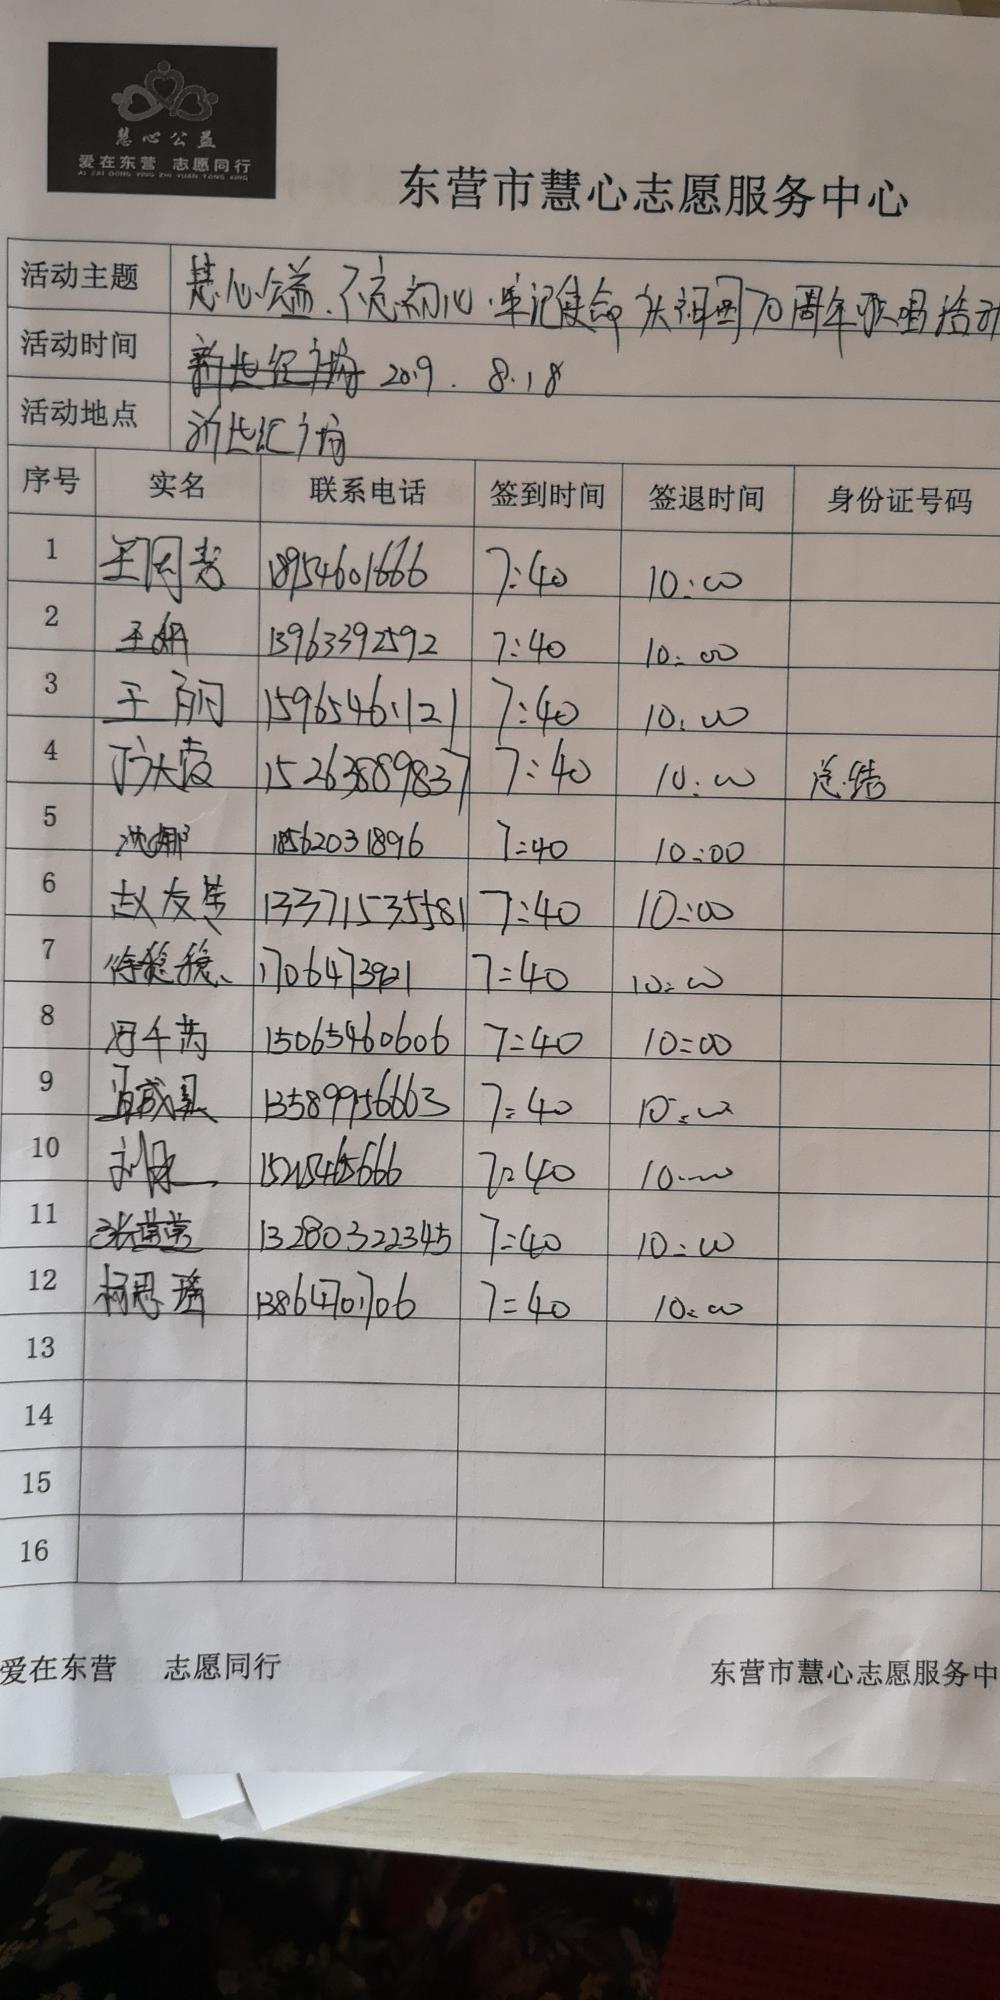 慧心公益
爱在东营 志愿同行
AI ZAI DONG YING ZHI YUAN TONG XING
东营市慧心志愿服务中心
活动主题 慧心公益.不忘初心.牢记使命 庆祖国70周年歌唱活动
活动时间 新世纪广场 2019.8.18
活动地点 新世纪广场
序号 实名 联系电话 签到时间 签退时间 身份证号码
1 18954601666 7:40 10:00
2 王娟 13963392592 7:40 10:00
3 王丽 15965461121 7:40 10:00
4 15263889837 7:40 10:00 总结
5 沈娜 18562031896 7:40 10:00
6 赵友 13371535581 7:40 10:00
7 徐稳稳 1706473921 7:40 10:00
8 15065460606 7:40 10:00
9 13589956663 7:40 10:00
10 7:40 10:00
11 张营营 13280322345 7:40 10:00
12 杨思瑶 13864701706 7:40 10:00
13
14
15
16
爱在东营 志愿同行 东营市慧心志愿服务中